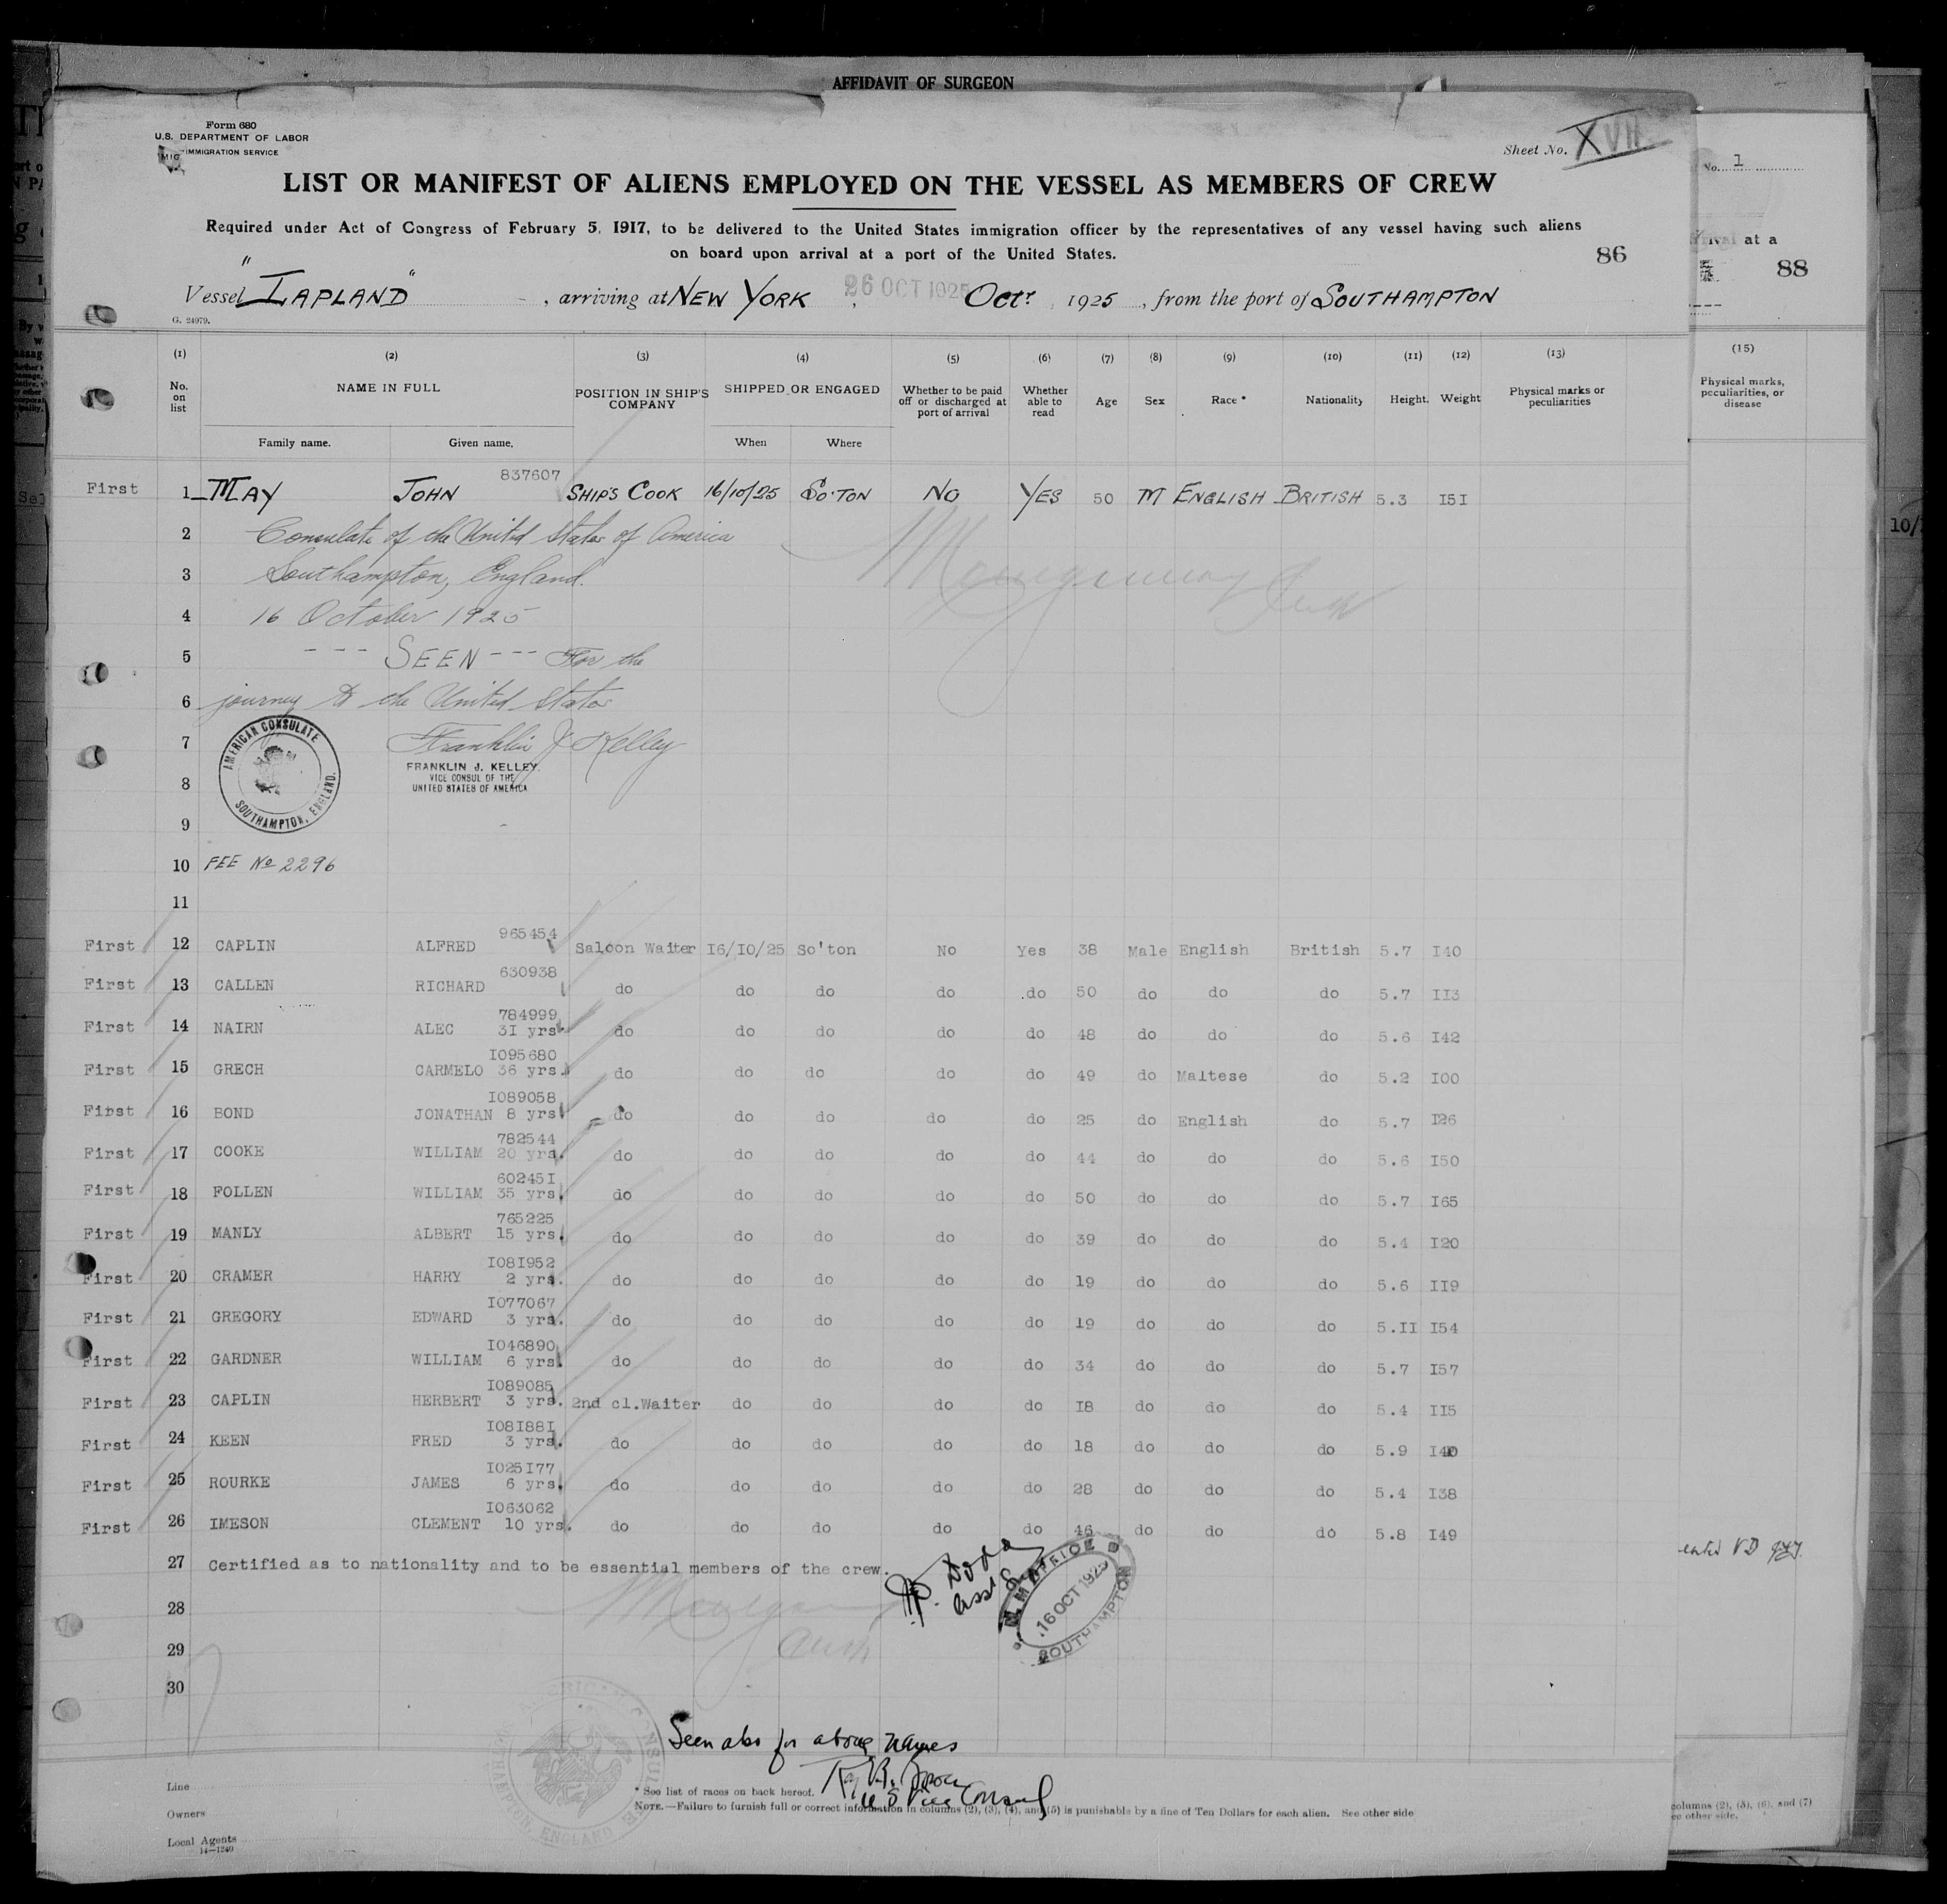 AFFIDAVIT OF SURGEON
Form 680
U.S. DEPARTMENT OF LABOR
IMMIGRATION SERVICE
Sheet No. XVII
No. 1
LIST OR MANIFEST OF ALIENS EMPLOYED ON THE VESSEL AS MEMBERS OF CREW
Required under Act of Congress of February 5, 1917, to be delivered to the United States immigration officer by the representatives of any vessel having such aliens
on board upon arrival at a port of the United States.
86
at a
88
Vessel "LAPLAND", arriving at NEW YORK, 26 OCT 1925 Octr 1925, from the port of SOUTHAMPTON
G. 24979.
(1) (2) (3) (4) (5) (6) (7) (8) (9) (10) (11) (12) (13) (15)
No. on list NAME IN FULL POSITION IN SHIP'S COMPANY SHIPPED OR ENGAGED Whether to be paid off or discharged at port of arrival Whether able to read Age Sex Race* Nationality Height. Weight Physical marks or peculiarities
Physical marks, peculiarities, or disease
Family name. Given name. When Where
837607
First 1 MAY JOHN SHIP'S COOK 16/10/25 SO'TON NO YES 50 M ENGLISH BRITISH 5.3 I5I
2 Consulate of the United States of America
3 Southampton, England.
4 16 October 1925
5 --- SEEN --- For the
6 journey to the United States
7 Franklin J Kelley
AMERICAN CONSULATE
SOUTHAMPTON, ENGLAND.
FRANKLIN J. KELLEY.
VICE CONSUL OF THE
8 UNITED STATES OF AMERICA
9
10 FEE No 2296
11
965454
First 12 CAPLIN ALFRED Saloon Waiter I6/IO/25 So'ton No Yes 38 Male English British 5.7 I40
630938
First 13 CALLEN RICHARD do do do do do 50 do do do 5.7 II3
784999
First 14 NAIRN ALEC 3I yrs do do do do do 48 do do do 5.6 I42
I095680
First 15 GRECH CARMELO 36 yrs. do do do do do 49 do Maltese do 5.2 I00
I089058
First 16 BOND JONATHAN 8 yrs do do do do do 25 do English do 5.7 I26
782544
First 17 COOKE WILLIAM 20 yrs. do do do do do 44 do do do 5.6 I50
60245I
First 18 FOLLEN WILLIAM 35 yrs. do do do do do 50 do do do 5.7 I65
765225
First 19 MANLY ALBERT 15 yrs. do do do do do 39 do do do 5.4 I20
I08I952
First 20 CRAMER HARRY 2 yrs. do do do do do 19 do do do 5.6 II9
I077067
First 21 GREGORY EDWARD 3 yrs. do do do do do 19 do do do 5.II I54
I046890
First 22 GARDNER WILLIAM 6 yrs. do do do do do 34 do do do 5.7 I57
I089085
First 23 CAPLIN HERBERT 3 yrs. 2nd cl.Waiter do do do do I8 do do do 5.4 II5
I08I88I
First 24 KEEN FRED 3 yrs. do do do do do 18 do do do 5.9 I40
I025I77
First 25 ROURKE JAMES 6 yrs. do do do do do 28 do do do 5.4 I38
I063062
First 26 IMESON CLEMENT 10 yrs. do do do do do 46 do do do 5.8 I49
27 Certified as to nationality and to be essential members of the crew.
16 OCT 1925
SOUTHAMPTON
28
29
30
AMERICAN CONSULATE
SOUTHAMPTON, ENGLAND
Seen also for above names
US Vice Consul
Line
* See list of races on back hereof.
NOTE.—Failure to furnish full or correct information in columns (2), (3), (4), and (5) is punishable by a fine of Ten Dollars for each alien. See other side
Owners
Local Agents
14—1240
columns (2), (3), (6), and (7)
other side.